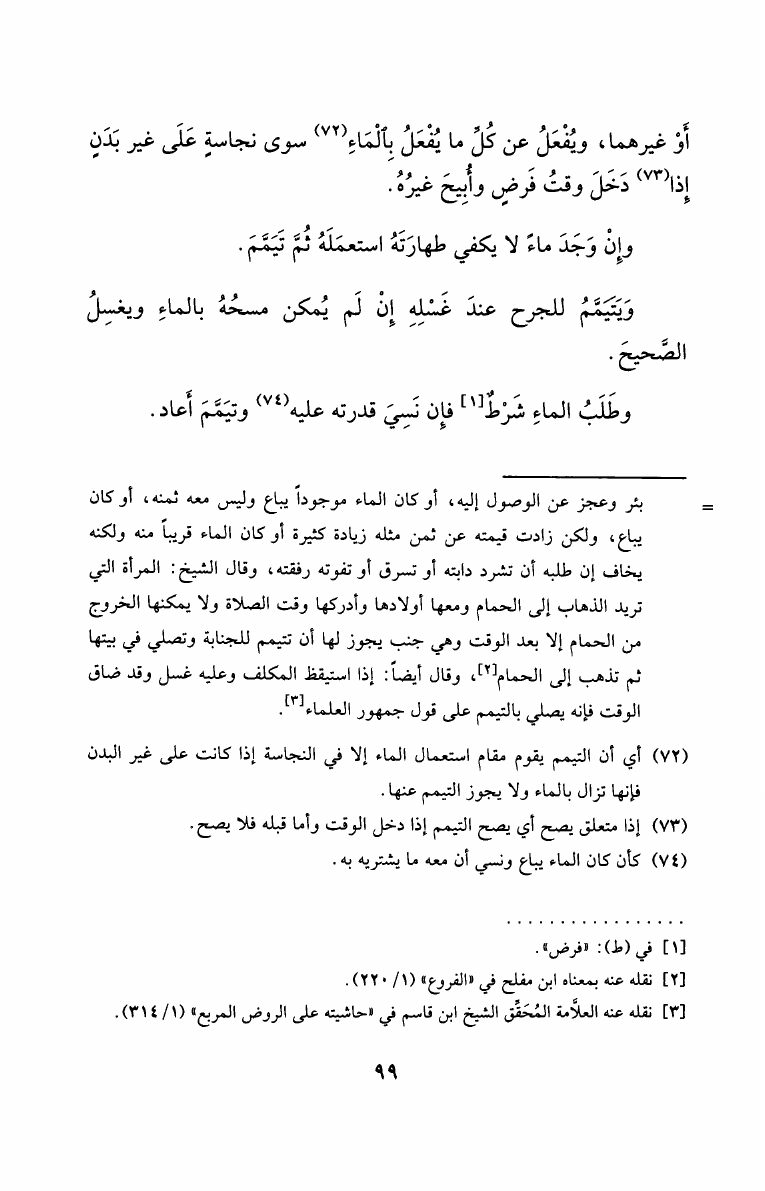 أَوْ غيرهما، ويُفْعَلُ عن كُلِّ ما يُفْعَلُ بِٱلْمَاءِ(٧٢) سوى نجاسةٍ عَلَى غير بَدَنٍ
إِذا(٧٣) دَخَلَ وقتُ فَرضٍ وأُبِيحَ غيرُهُ.
وإِنْ وَجَدَ ماءً لا يكفي طهارَتَهُ استعمَلَهُ ثُمَّ تَيَمَّمَ.
وَيَتَيَمَّمُ للجرح عندَ غَسْلِهِ إِنْ لَم يُمكن مسحُهُ بالماءِ ويغسِلُ
الصَّحيحَ.
وطَلَبُ الماءِ شَرْطٌ[١] فإِن نَسِيَ قدرته عليه(٧٤) وتيَمَّمَ أَعاد.
= بئر وعجز عن الوصول إليه، أو كان الماء موجوداً يباع وليس معه ثمنه، أو كان
يباع، ولكن زادت قيمته عن ثمن مثله زيادة كثيرة أو كان الماء قريباً منه ولكنه
يخاف إن طلبه أن تشرد دابته أو تسرق أو تفوته رفقته، وقال الشيخ: المرأة التي
تريد الذهاب إلى الحمام ومعها أولادها وأدركها وقت الصلاة ولا يمكنها الخروج
من الحمام إلا بعد الوقت وهي جنب يجوز لها أن تتيمم للجنابة وتصلي في بيتها
ثم تذهب إلى الحمام[٢]، وقال أيضاً: إذا استيقظ المكلف وعليه غسل وقد ضاق
الوقت فإنه يصلي بالتيمم على قول جمهور العلماء[٣].
(٧٢) أي أن التيمم يقوم مقام استعمال الماء إلا في النجاسة إذا كانت على غير البدن
فإنها تزال بالماء ولا يجوز التيمم عنها.
(٧٣) إذا متعلق يصح أي يصح التيمم إذا دخل الوقت وأما قبله فلا يصح.
(٧٤) كأن كان الماء يباع ونسي أن معه ما يشتريه به.
. . . . . . . . . . . . . . . . .
[١] في (ط): «فرض».
[٢] نقله عنه بمعناه ابن مفلح في «الفروع» (١/ ٢٢٠).
[٣] نقله عنه العلَّامة المُحَقِّق الشيخ ابن قاسم في «حاشيته على الروض المربع» (١/ ٣١٤).
٩٩